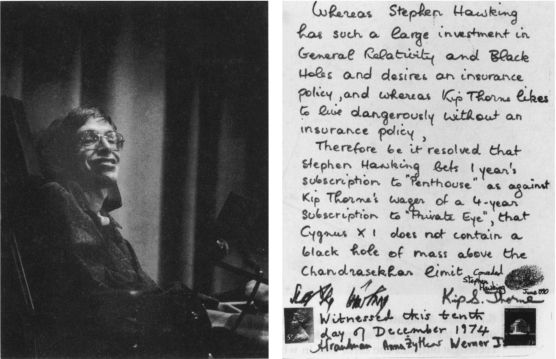 Whereas Stephen Hawking
has such a large investment in
General Relativity and Black
Holes and desires an insurance
policy, and whereas Kip Thorne likes
to live dangerously without an
insurance policy,
Therefore be it resolved that
Stephen Hawking bets 1 year's
subscription to "Penthouse" as against
Kip Thorne's wager of a 4-year
Subscription to "Private Eye", that
Cygnus X 1 does not contain a
black hole of mass above the
Chandrasekhar limit.
Conceded
Stephen
Hawking
June 1990
Kip S. Thorne
Witnessed this tenth
day of December 1974
Anna Żytkow Werner